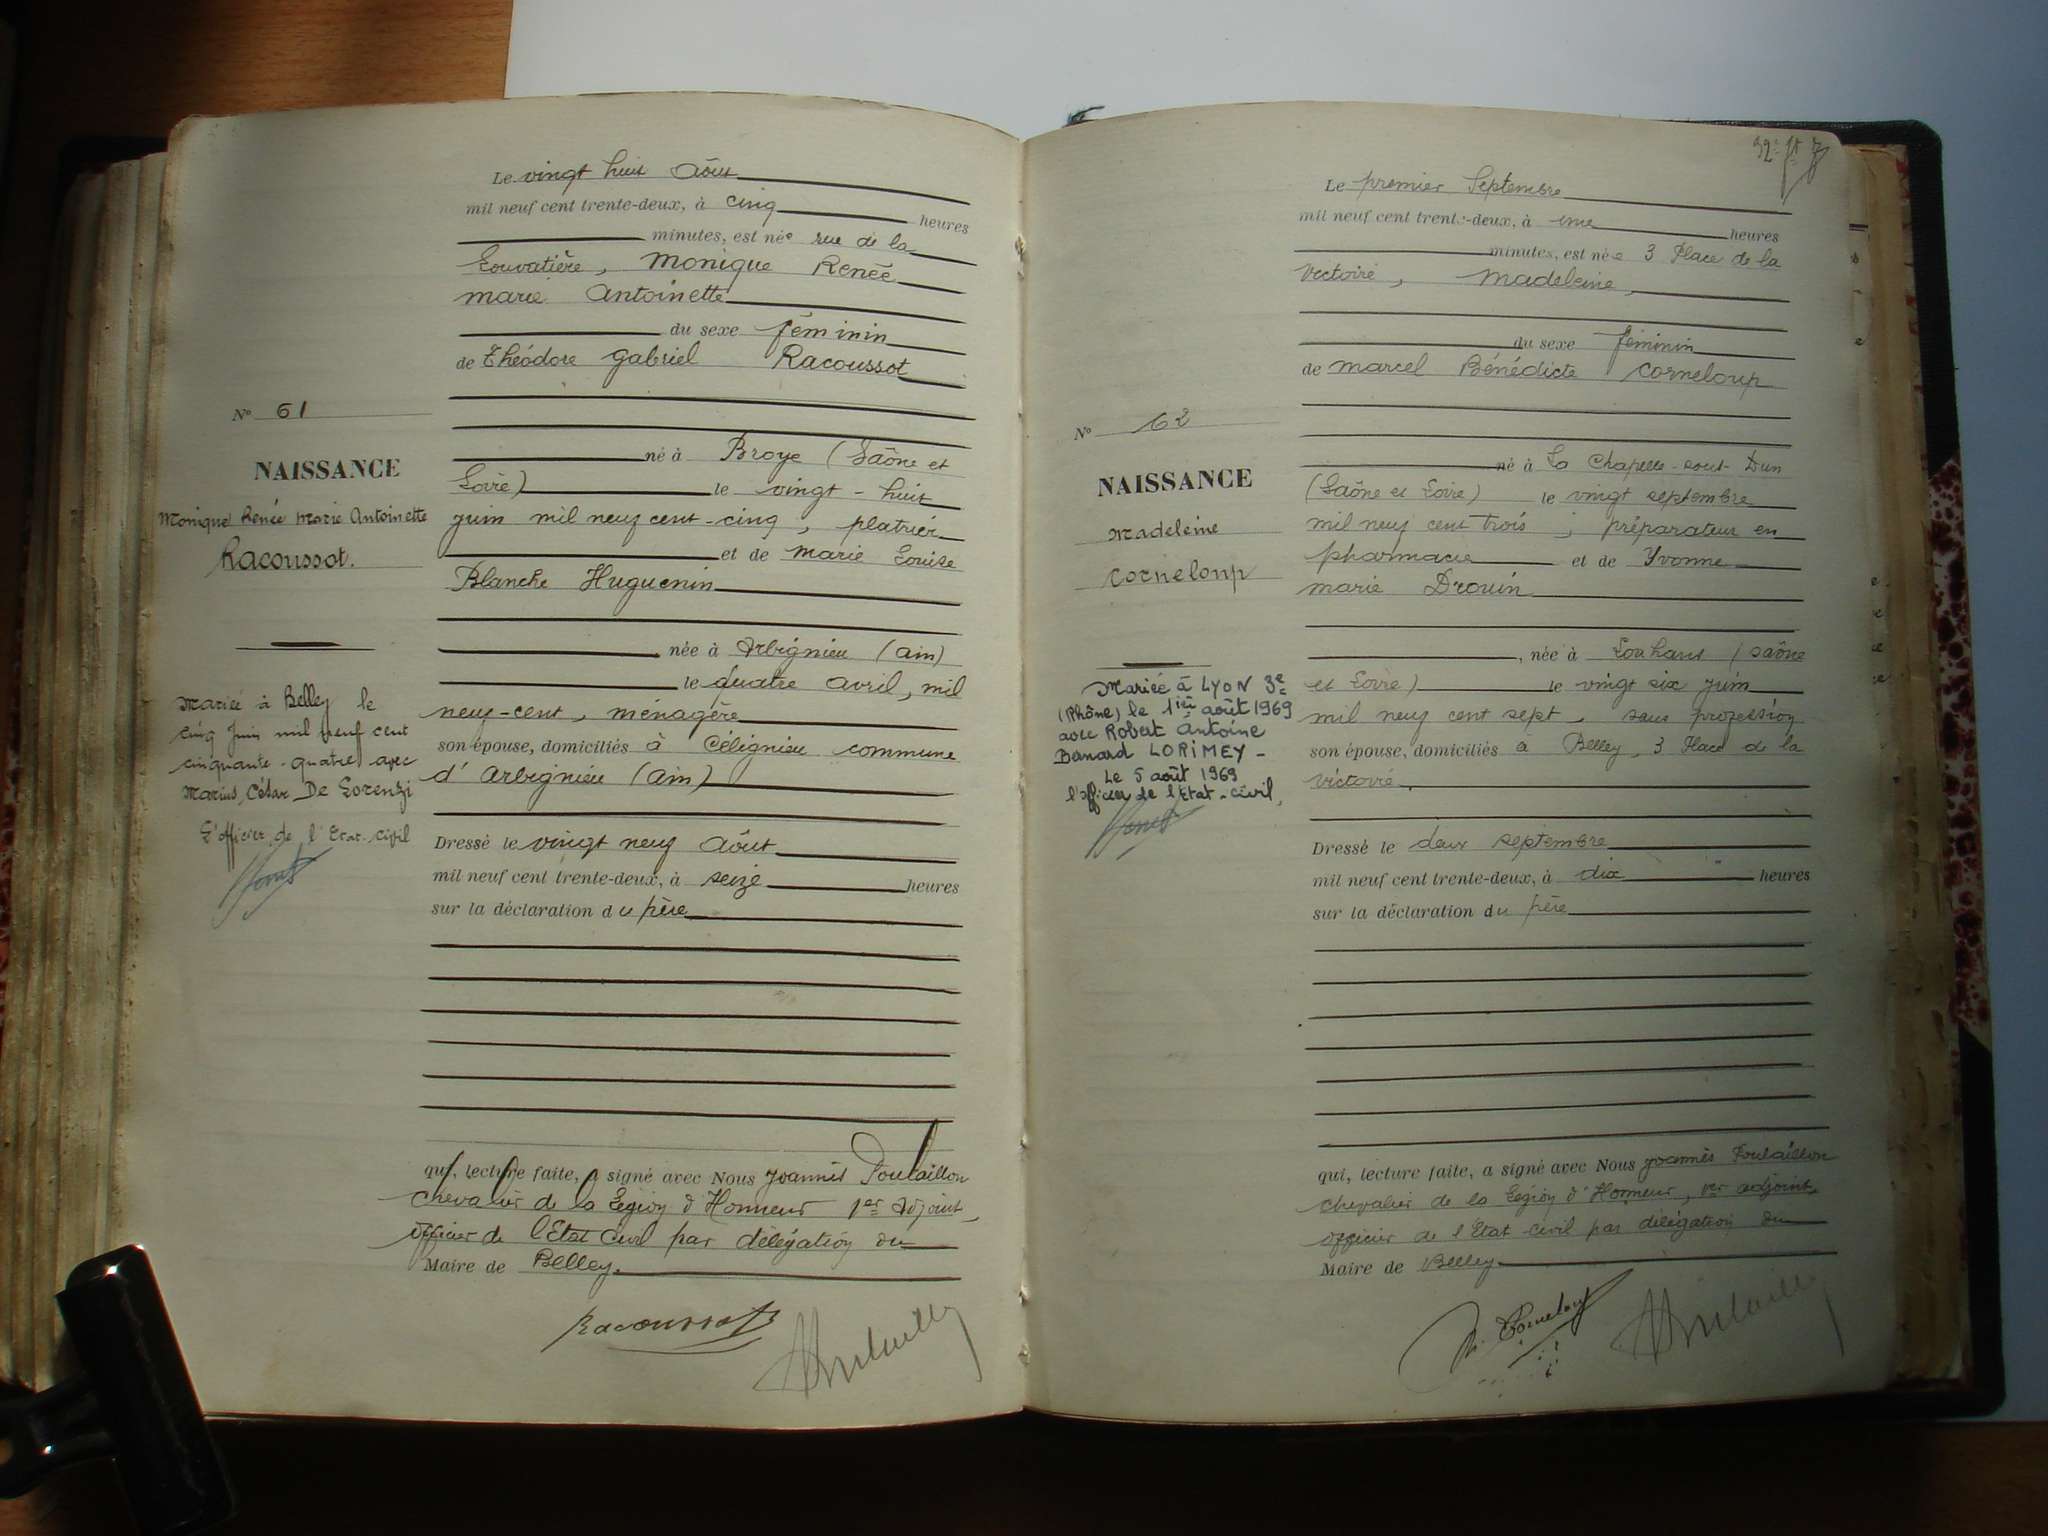 Le vingt huit Août
mil neuf cent trente-deux, à cinq heures
minutes, est née rue de la
Louvatière, Monique Renée
Marie Antoinette
du sexe féminin
de Théodore Gabriel Racoussot
N° 61
NAISSANCE
Monique Renée Marie Antoinette
Racoussot.
né à Broye (Saône et
Loire) le vingt-huit
juin mil neuf cent-cinq, platrier
et de Marie Louise
Blanche Huguenin
née à Arbignieu (Ain)
le quatre avril, mil
neuf-cent, ménagère
son épouse, domiciliés à Céligneu commune
d'Arbignieu (Ain)
Mariée à Belley le
cinq Juin mil neuf cent
cinquante-quatre avec
Marius, César De Lorenzi
L'officier de l'Etat-civil
Dressé le vingt neuf Août
mil neuf cent trente-deux, à seize heures
sur la déclaration du père
qui, lecture faite, a signé avec Nous Joannès Poulaillon
Chevalier de la Légion d'Honneur 1er Adjoint,
Officier de l'Etat Civil par délégation du
Maire de Belley.
Racoussot
Le premier Septembre
mil neuf cent trente-deux, à une heures
minutes, est née 3 Place de la
Victoire, Madeleine,
du sexe féminin
de Marcel Bénédicte Corneloup
N° 62
NAISSANCE
Madeleine
Corneloup
né à La Chapelle-sous-Dun
(Saône et Loire) le vingt septembre
mil neuf cent trois, préparateur en
pharmacie et de Yvonne
Marie Drouin
, née à Louhans (Saône
et Loire) le vingt six juin
mil neuf cent sept, sans profession
son épouse, domiciliés à Belley, 3 Place de la
Victoire.
Mariée à LYON 3e
(Rhône) le 1ier août 1969
avec Robert Antoine
Benard LORIMEY -
Le 5 août 1969
l'officier de l'Etat-civil,
Dressé le deux septembre
mil neuf cent trente-deux, à dix heures
sur la déclaration du père
qui, lecture faite, a signé avec Nous Joannès Poulaillon
Chevalier de la Légion d'Honneur, 1er adjoint,
officier de l'Etat-civil par délégation du
Maire de Belley.
Corneloup